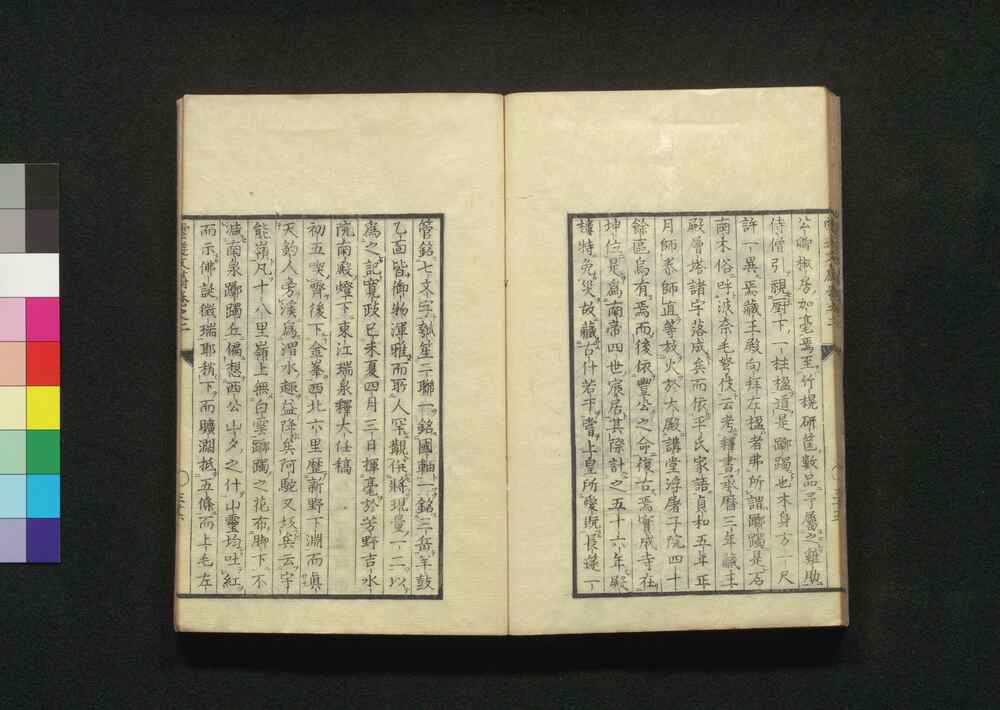 公卿椒居加毫焉至竹榥研筥數品予屬之雞肋
侍僧引視厨下一柱楹道是躑躅也本身方一尺
許一異焉藏王殿向拜左楹者弗所謂躑躅是乃
南木俗呼波奈毛督伎云考釋書承曆三年藏王
殿層塔諸宇落成矣而依平氏家語貞和五年正
月師泰師直等放火於大殿講堂浮屠子院四十
餘區烏有焉而後依豐公之命復古焉實成寺在
坤位是爲南帝四世宸居其際計之五十六年殿
樓特免災故藏古什若干嘗上皇所愛玩長邃一
管銘七文字瓢笙二聯一銘國軸一銘三岳羊鼓
乙面皆御物渾雅而取人罕觀侭將現量一二以
爲之記寬政已未夏四月三日揮毫於芳野吉水
院南殿燈下東江瑞泉釋大任稿
初五喫齊後下金峯西北六里歷新野下淵而眞
天釣人旁溪爲渭水趣益降矣阿駝又坂矣云宇
能嶺凡十八里嶺上無白雲躑躅之花布脚下不
減南泉躑躅丘偏想西公山夕之什山靈均吐紅
而示佛誕徵瑞耶稍下而曠淵抵五條而上毛左